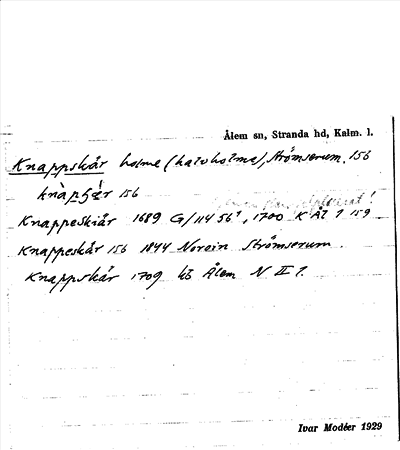 Ålem sn, Stranda hd, Kalm. l.
Knappskär holme (halvholme), Strömserum. 156
knàpʂæ̀r 156
Knappeskiär 1689 G/114 56¹, 1700 K Äl 7 159
Knappeskär 156 1844 Norein Strömserum.
Knappskär 1709 Ålem N II 7.
Ivar Modéer 1929